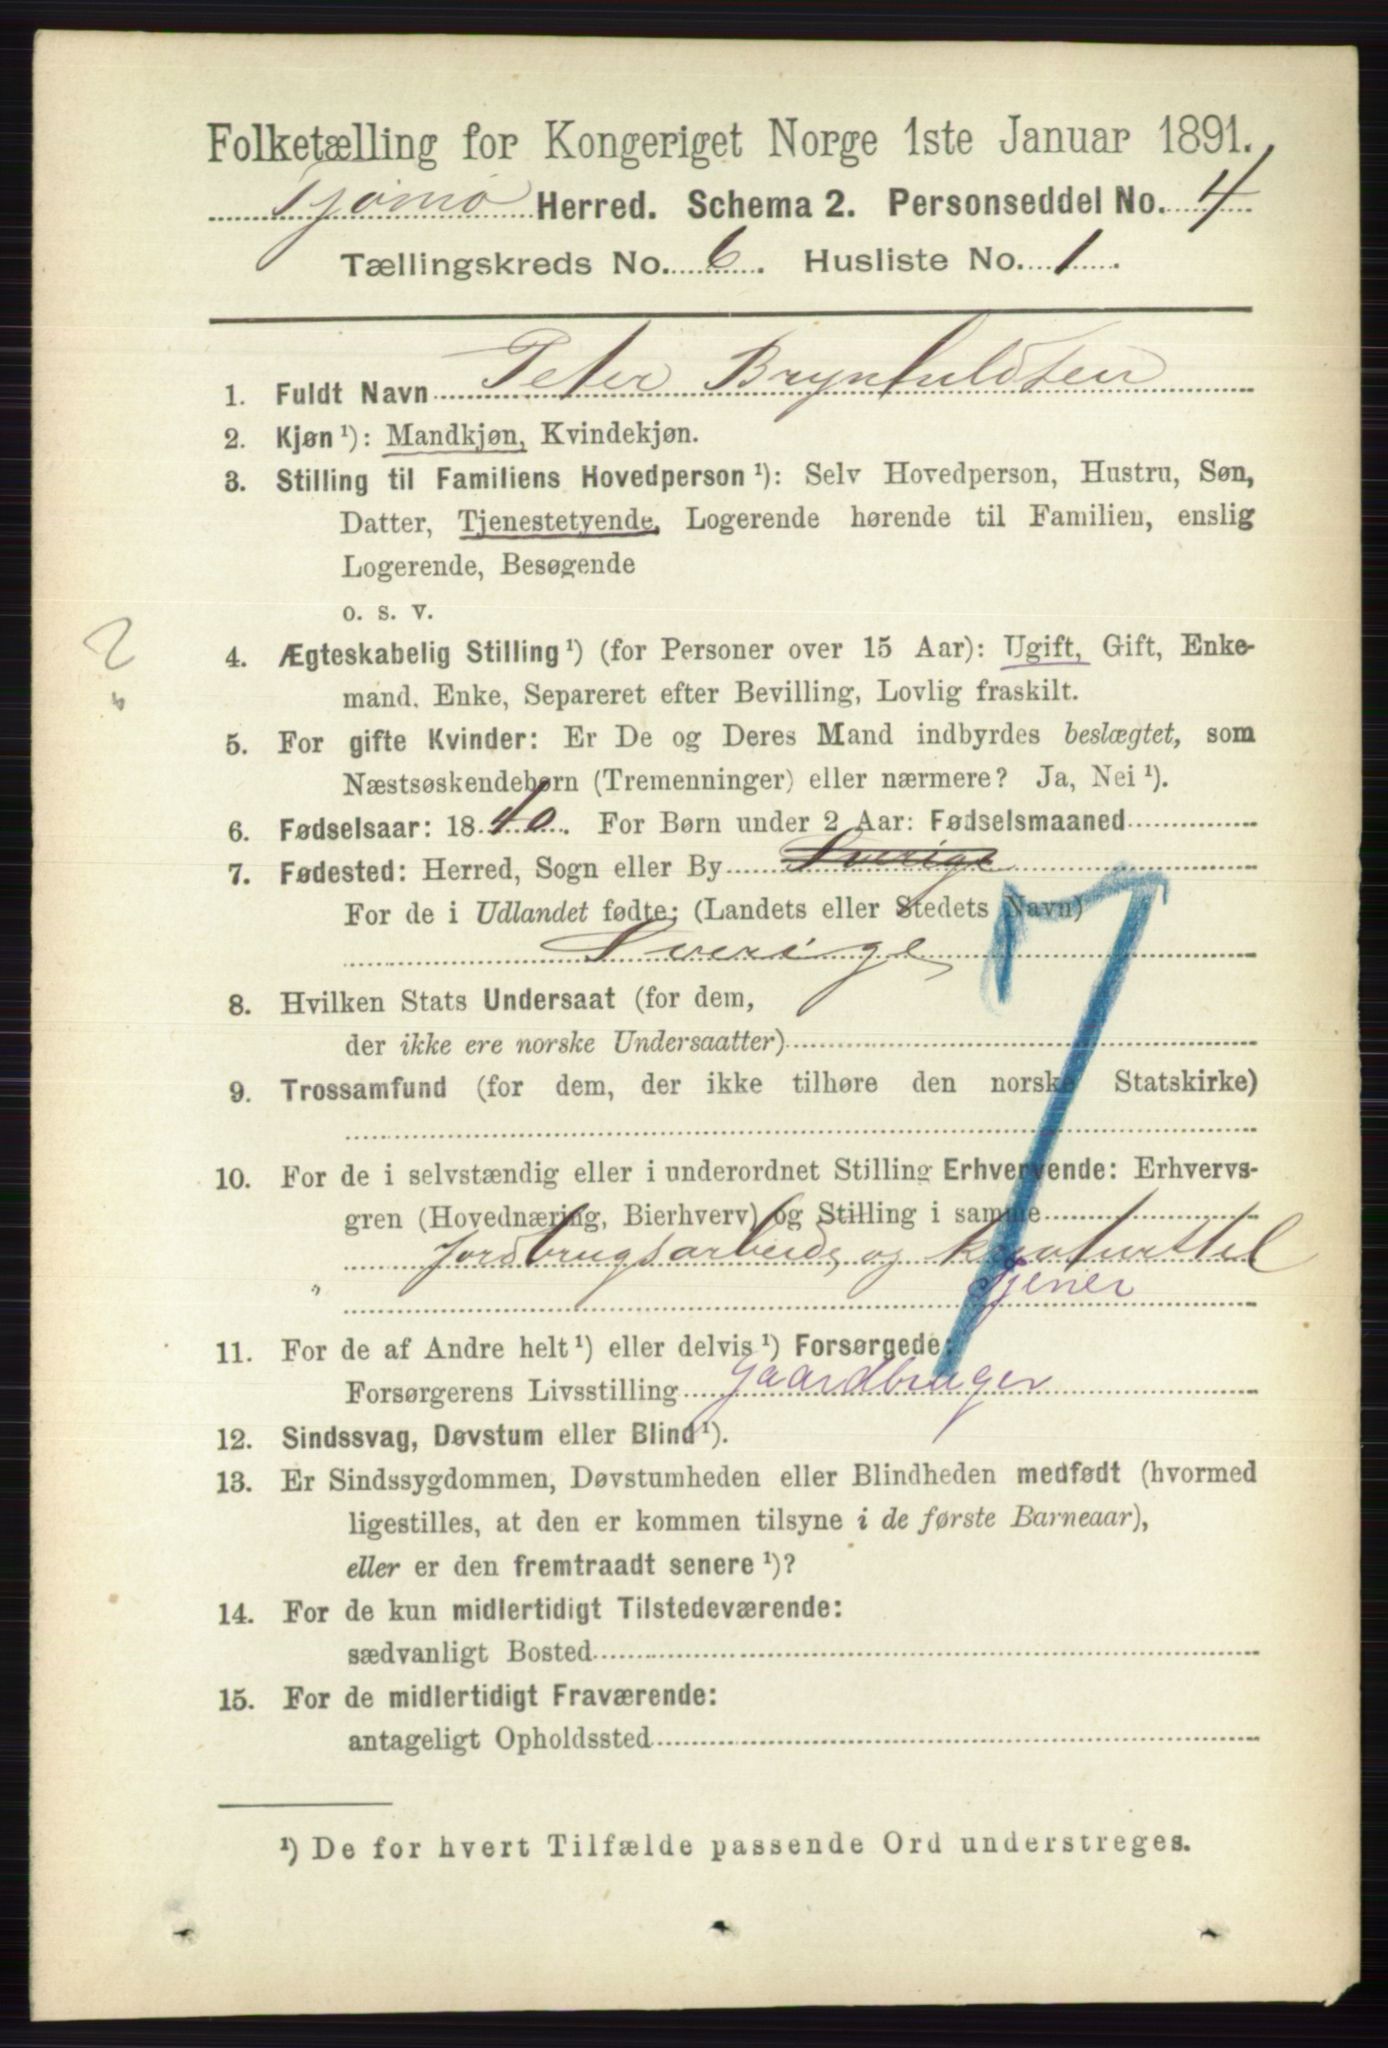 Folketælling for Kongeriget Norge 1ste Januar 1891.
Tjømø Herred. Schema 2. Personseddel No. 4
Tællingskreds No. 6. Husliste No. 1.
1. Fuldt Navn Peter Brynhuldsen
2. Kjøn ¹): Mandkjøn, Kvindekjøn.
3. Stilling til Familiens Hovedperson ¹): Selv Hovedperson, Hustru, Søn,
Datter, Tjenestetyende, Logerende hørende til Familien, enslig
Logerende, Besøgende
o. s. v.
2
4. Ægteskabelig Stilling ¹) (for Personer over 15 Aar): Ugift, Gift, Enke-
mand, Enke, Separeret efter Bevilling, Lovlig fraskilt.
5. For gifte Kvinder: Er De og Deres Mand indbyrdes beslægtet, som
Næstsøskendebørn (Tremenninger) eller nærmere? Ja, Nei ¹).
6. Fødselsaar: 1840. For Børn under 2 Aar: Fødselsmaaned
7. Fødested: Herred, Sogn eller By Sverige
For de i Udlandet fødte: (Landets eller Stedets Navn)
Sverige
7
8. Hvilken Stats Undersaat (for dem,
der ikke ere norske Undersaatter)
9. Trossamfund (for dem, der ikke tilhøre den norske Statskirke)
10. For de i selvstændig eller i underordnet Stilling Erhvervende: Erhvervs-
gren (Hovednæring, Bierhverv) og Stilling i samme
Jordbrugsarbeide og
Tjener
11. For de af Andre helt ¹) eller delvis ¹) Forsørgede:
Forsørgerens Livsstilling Gaardbruger
12. Sindssvag, Døvstum eller Blind ¹).
13. Er Sindssygdommen, Døvstumheden eller Blindheden medfødt (hvormed
ligestilles, at den er kommen tilsyne i de første Barneaar),
eller er den fremtraadt senere ¹)?
14. For de kun midlertidigt Tilstedeværende:
sædvanligt Bosted
15. For de midlertidigt Fraværende:
antageligt Opholdssted
¹) De for hvert Tilfælde passende Ord understreges.